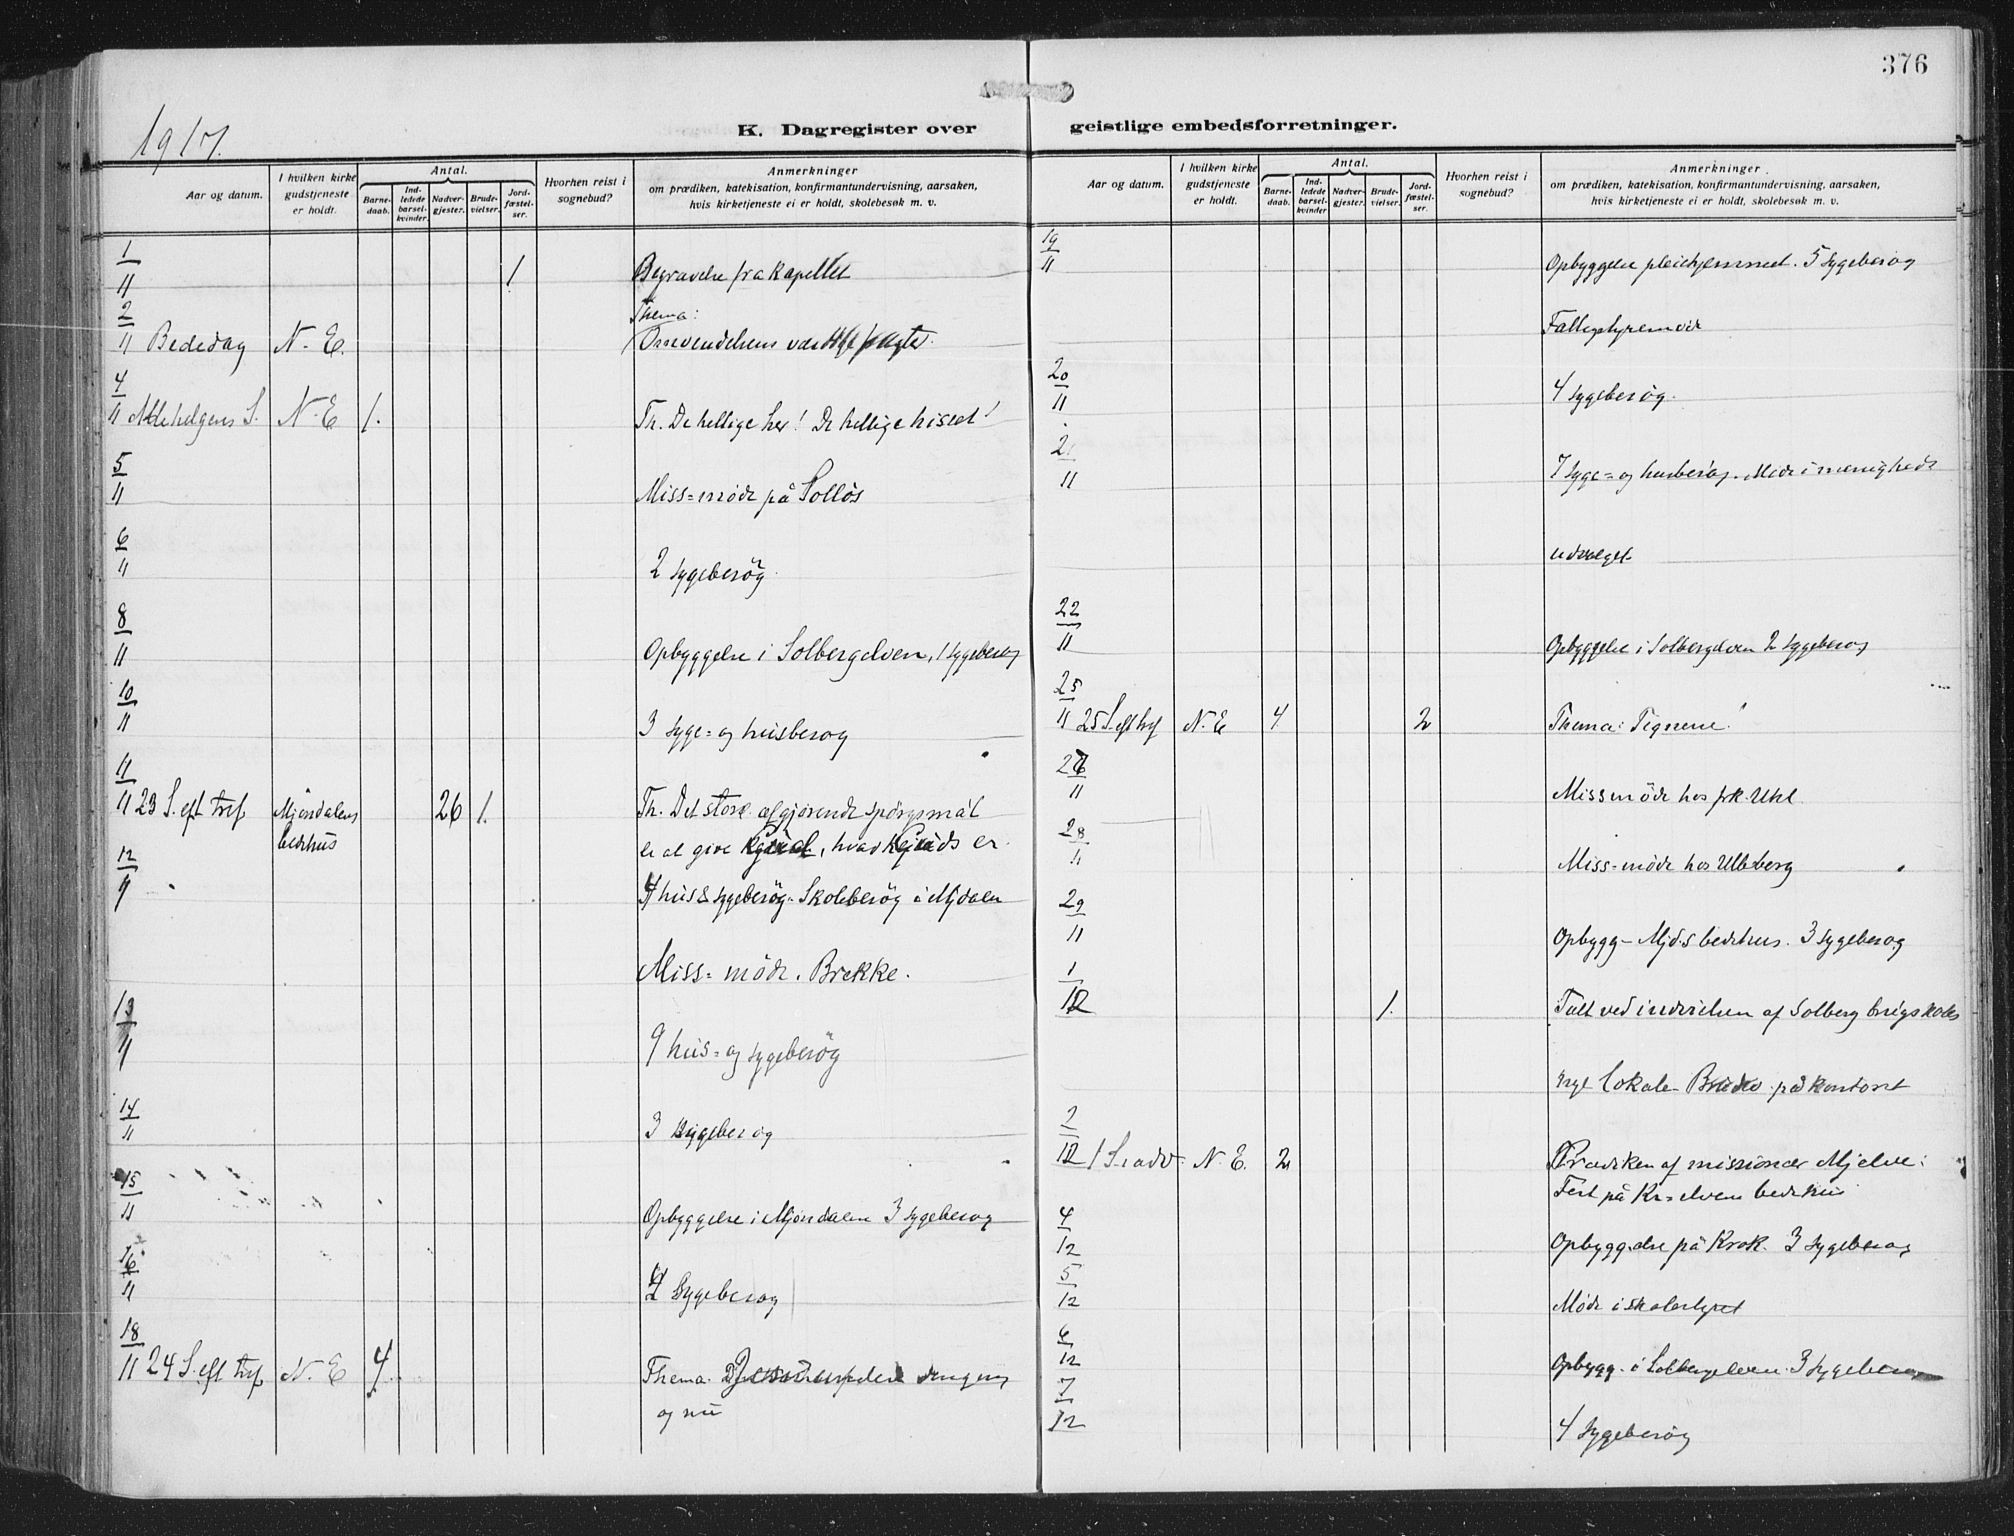 376
1917.
K. Dagregister over geistlige embedsforretninger.
Aar og datum.
I hvilken kirke gudstjeneste er holdt.
Antal.
Barne-daab.
Ind-ledede barsel-kvinder
Nadver-gjester.
Brude-vielser.
Jord-fæstel-ser.
Hvorhen reist i sognebud?
Anmerkninger
om prædiken, katekisation, konfirmantundervisning, aarsaken,
hvis kirketjeneste ei er holdt, skolebesøk m. v.
1/11 1 Begravelse fra kapellet
2/11 Bededag N. E. Thema:
Omvendelsens
4/11 Allehelgens S. N. E 1. Th. De hellige her! De hellige hisset!
5/11 Miss=møde på Solløs
6/11 2 sygebesøg.
8/11 Opbyggelse i Solbergelven, 1 sygebesøg
10/11 3 syge= og husbesøg
11/11 23 S. eft tref Mjøndalens bedehus 26 1. Th. Det store afgjørende spørgsmål
er at give , hvad er.
12/11 4 hus & sygebesøg. Skolebesøg i Mjdalen
Miss= møde. Brekke.
13/11 9 hus= og sygebesøg
14/11 3 sygebesøg
15/11 Opbyggelse i Mjøndalen 3 sygebesøg
16/11 2 Sygebesøg
18/11 24 S. eft tref N. E 4. Thema.
og nu
Aar og datum.
I hvilken kirke gudstjeneste er holdt.
Antal.
Barne-daab.
Ind-ledede barsel-kvinder
Nadver-gjester.
Brude-vielser.
Jord-fæstel-ser.
Hvorhen reist i sognebud?
Anmerkninger
om prædiken, katekisation, konfirmantundervisning, aarsaken,
hvis kirketjeneste ei er holdt, skolebesøk m. v.
19/11 Opbyggelse pleiehjemmet. 5 sygebesøg
20/11 4 sygebesøg.
21/11 7 syge= og husbesøg. Møde i menigheds
udvalget
22/11 Opbyggelse i Solbergelven 2 sygebesøg
25/11 25 S. eft tref N. E 4 2 Thema: Tegnene!
26/11 Missmøde hos frk. Uhl
28/11 Miss=møde hos Ulleberg
29/11 Opbygg- Mjd.s bedehus. 3 sygebesøg
1/12 1. Talt ved indvielsen af Solberg brugskoles
nye lokale Brudev på kontoret
2/12 1 S. i adv. N. E. 2 Prædiken af missionær Mjelve:
Fest på Kr=elvens bedehus
4/12 Opbyggelse på Krok. 3 sygebesøg
5/12 Møde i skolestyret
6/12 Opbygg. i Solbergelven. 3 sygebesøg
7/12 4 sygebesøg